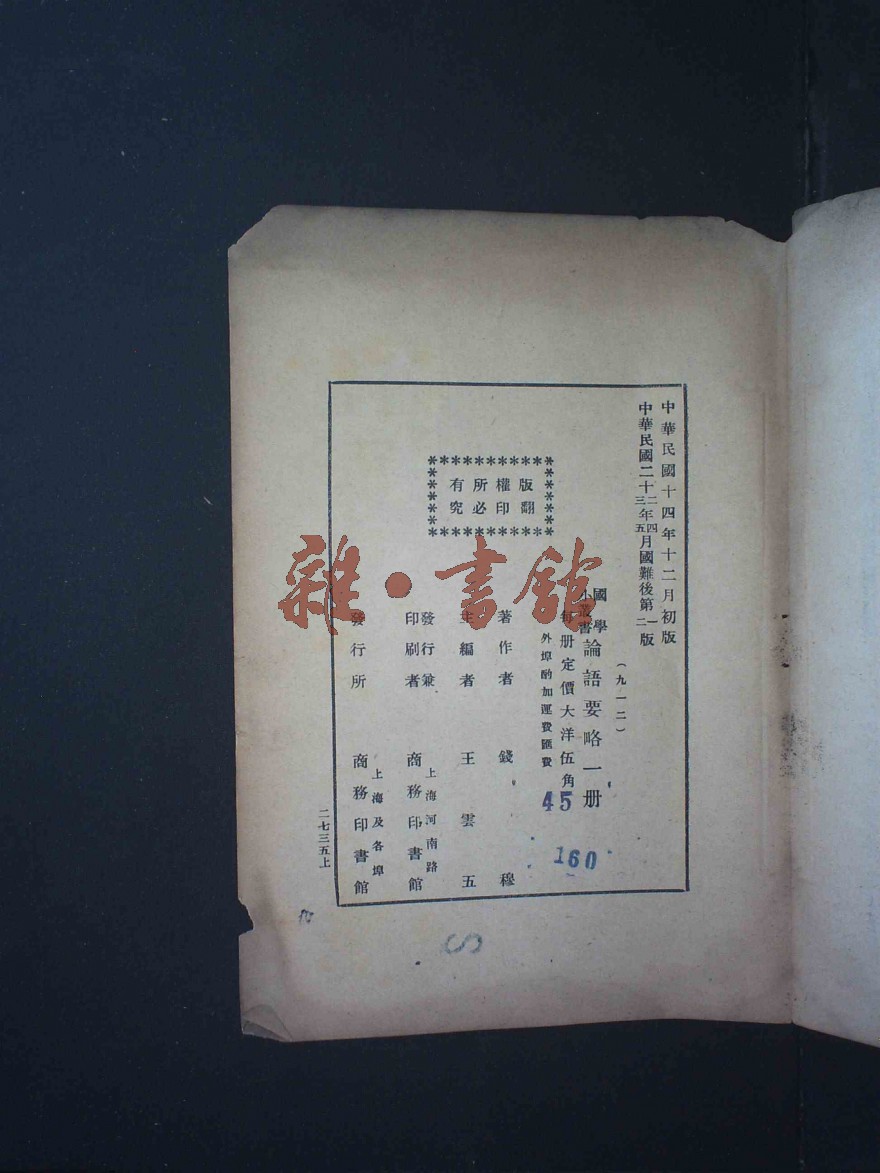 中華民國十四年十二月初版
中華民國二十二年四月國難後第一版
三五二
(九一二)
國學
小叢書
論語要略一册
每册定價大洋伍角
外埠酌加運費匯費
45
160
版權所有
翻印必究
著作者 錢穆
主編者 王雲五
發行兼
印刷者
上海河南路
商務印書館
發行所
上海及各埠
商務印書館
二七三五上
雜·書館